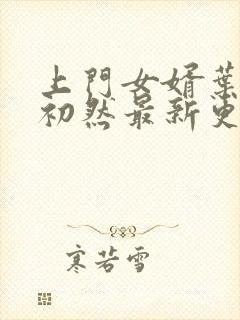 上門女婿葉
初然最新更
寒若雪